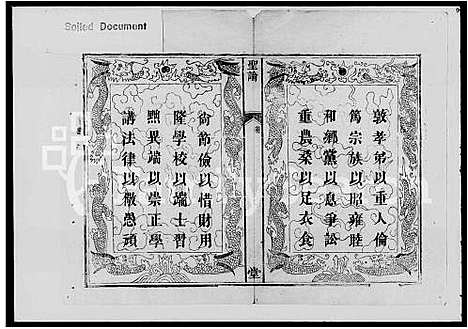 Soiled Document
聖諭
敦孝弟以重人倫
篤宗族以昭雍睦
和鄉黨以息爭訟
重農桑以足衣食
尙節儉以惜財用
隆學校以端士習
黜異端以崇正學
講法律以儆愚頑
堂